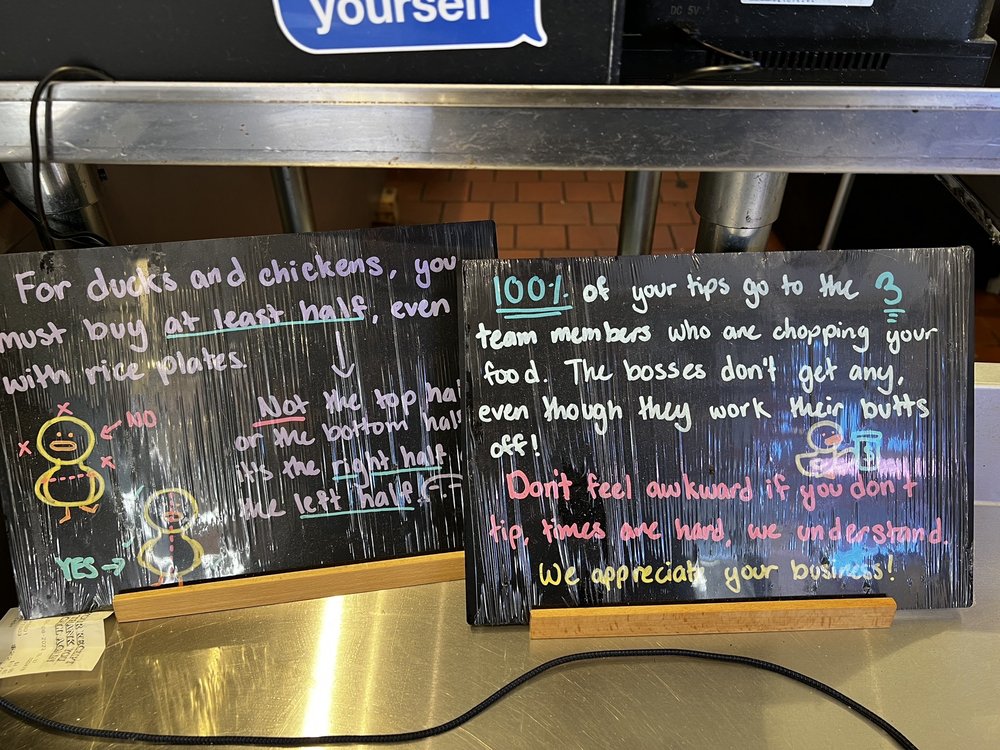 yourself
DC 5V
For ducks and chickens, you
must buy at least half, even
with rice plates.
Not the top
or the bottom
it's the right half
the left half
NO
YES
100% of your tips go to the 3
team members who are chopping your
food. The bosses don't get any,
even though they work their butts
off!
$
Don't feel awkward if you don't
tip, times are hard, we understand.
We appreciate your business!